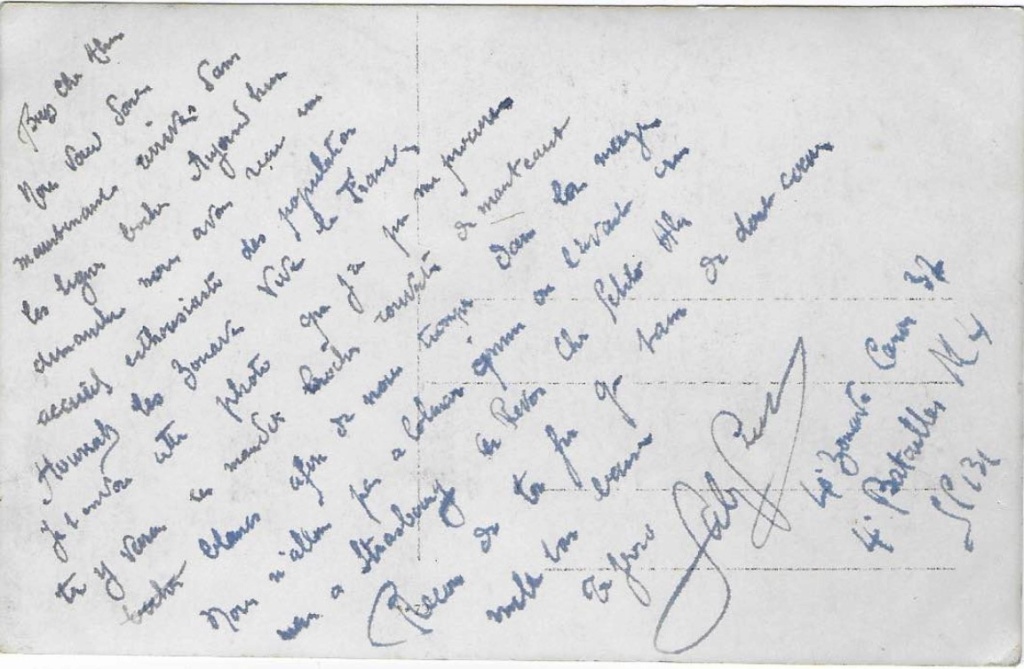 Nous voici donc
maintenant arrivés dans
les lignes boches Aujourd'hui
dimanche nous avons recu un
accueil enthousiaste des population
Hourrah les Zouaves Vive la France,
je t envoi cette photo que j'ai pu me procurer
tu y verra ce maudit boche rouvert de manteaux
blancs afin de nous tromper dans la neige
Nous n'allon pas a Colmar comme on l'avait cru
mais a Strasbourg Au Revoir Cher Petite
Recois de ton qui t'aime de tout cœur
mille bons
Ta
Gaby
4e Zouaves Caron 37
4e Bataillon M 4
SP 131